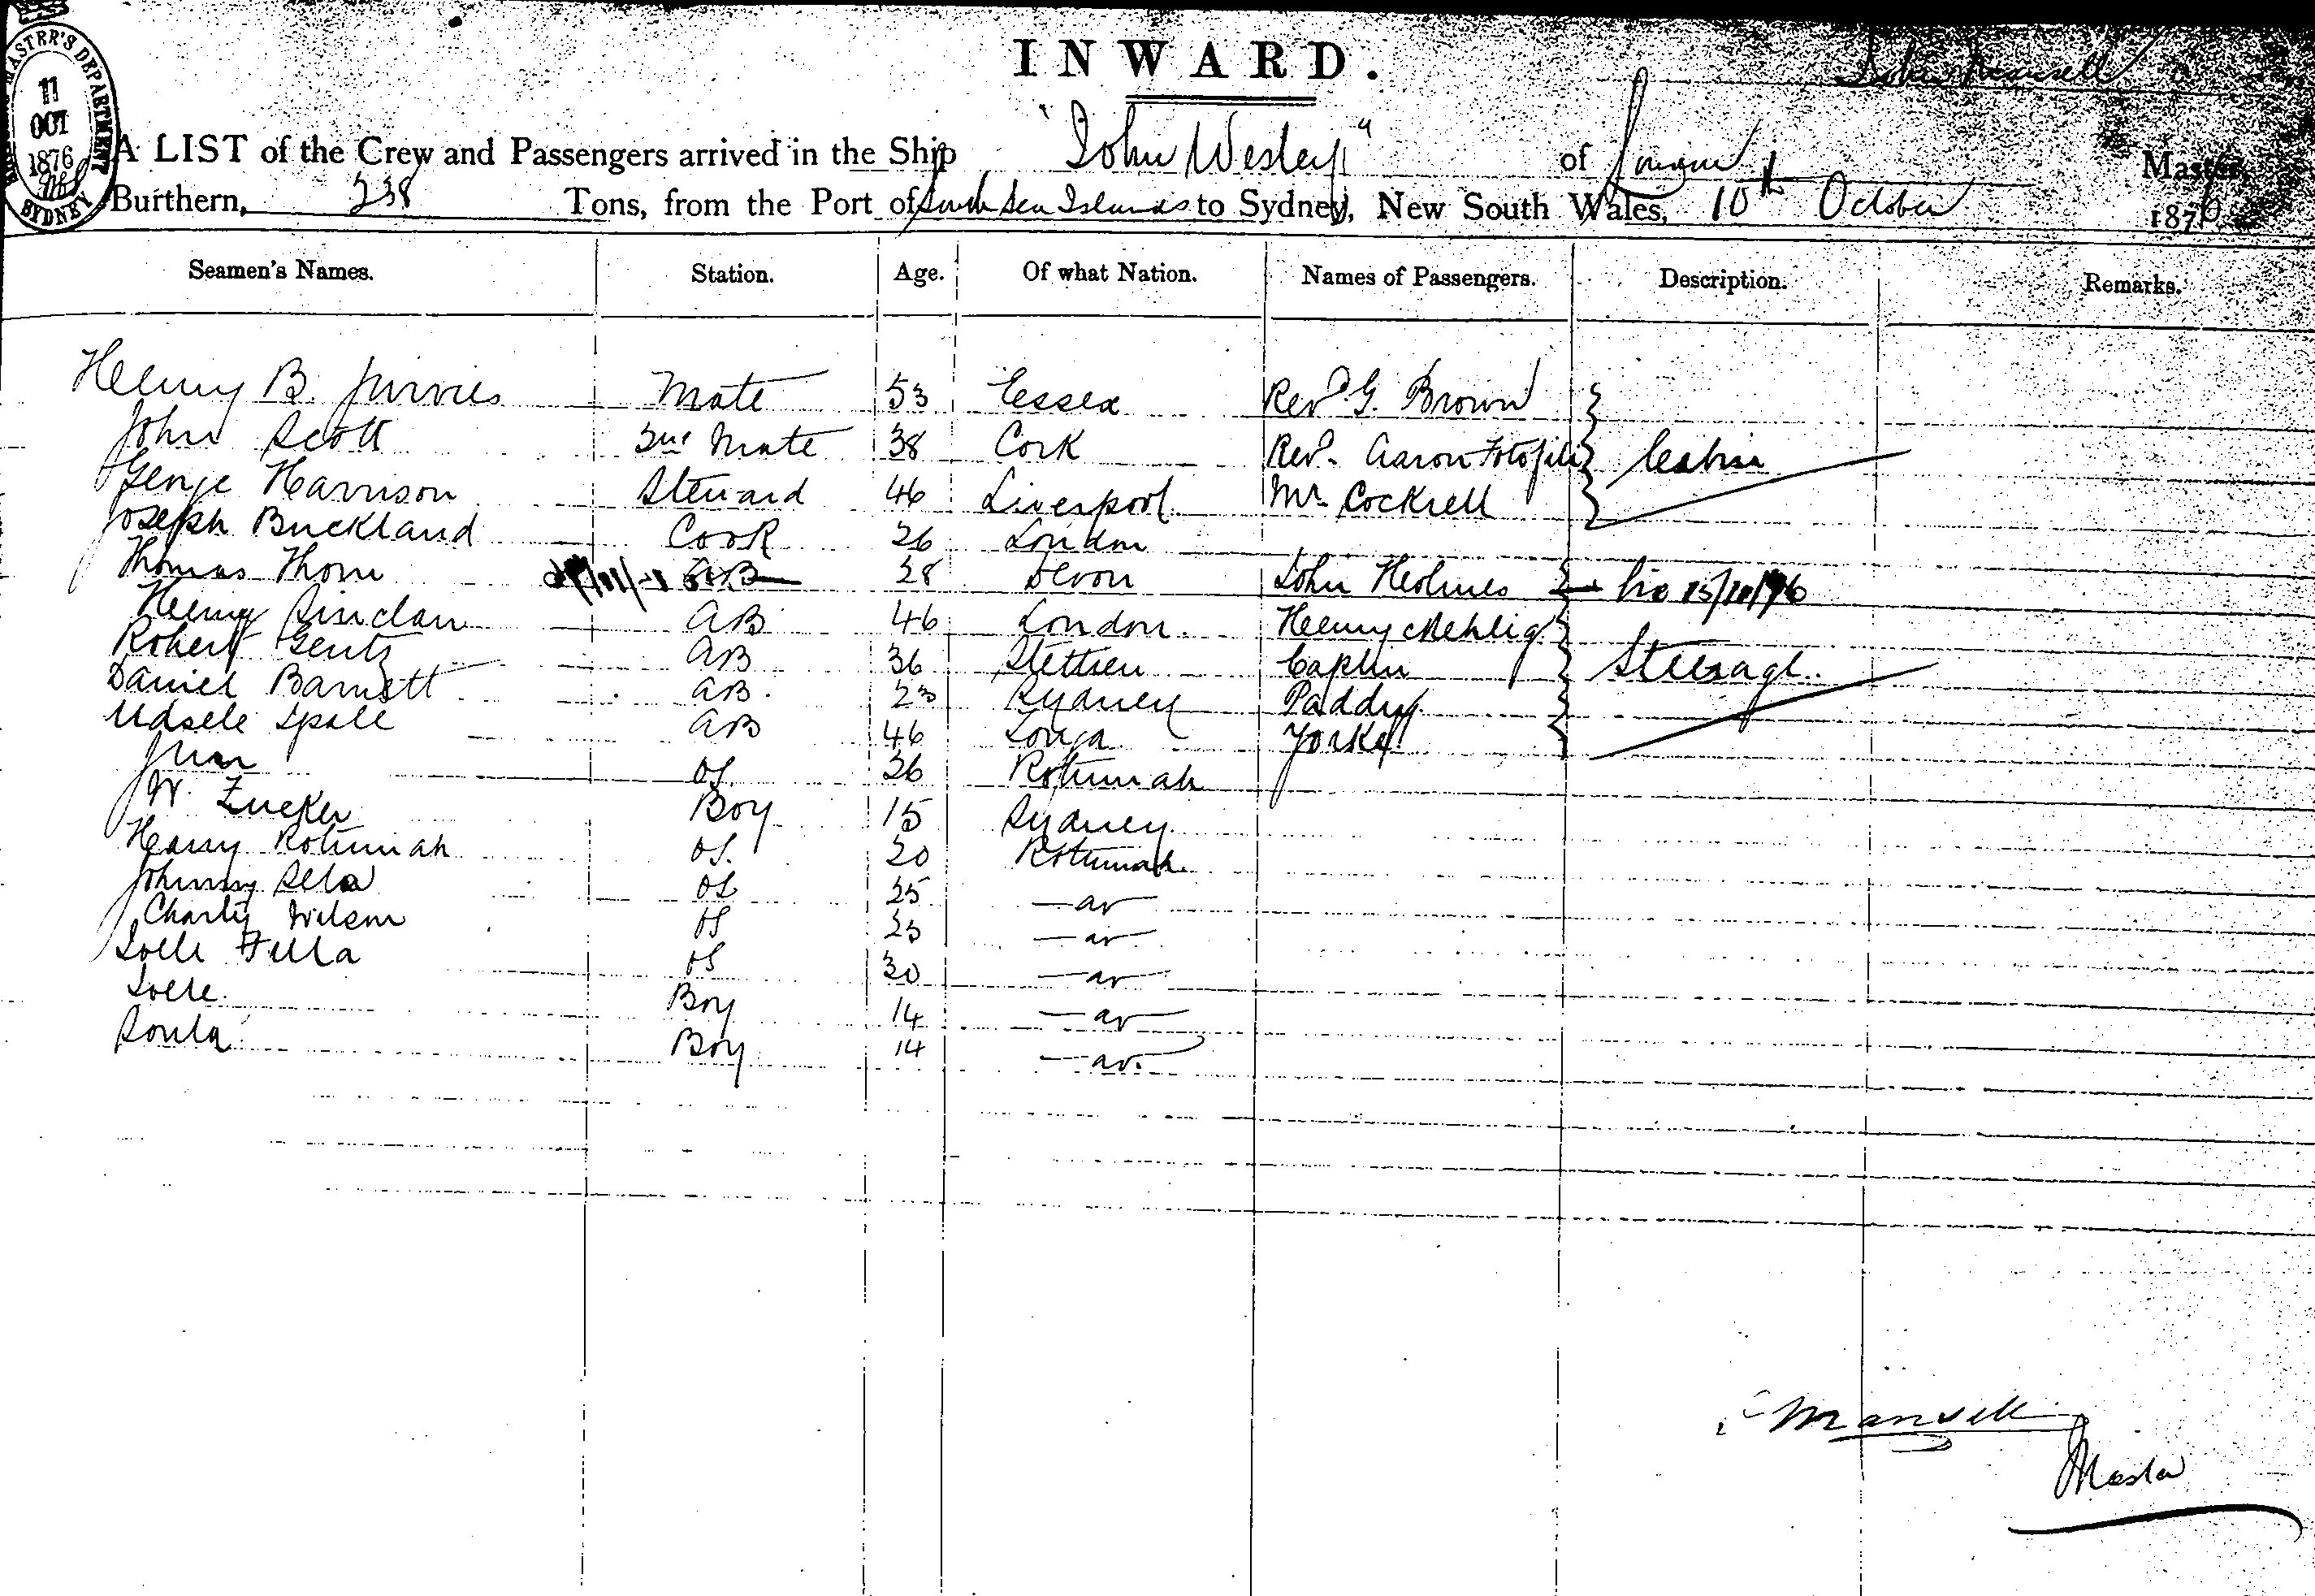 INWARD.
MASTER'S DEPARTMENT
11
OCT
1876
SYDNEY
John Mansell
A LIST of the Crew and Passengers arrived in the Ship "John Wesley" of London Master,
Burthern, 238 Tons, from the Port of South Sea Islands to Sydney, New South Wales, 10th October 1876
Seamen's Names. Station. Age. Of what Nation. Names of Passengers. Description. Remarks.
Henry B. Mate 53 Essex Revd. G. Brown
John Scott 2nd Mate 38 Cork Revd. Aaron Fotofili Cabin
George Harrison Steward 46 Liverpool Mr Cockrell
Joseph Buckland Cook 26 London
Thomas Thom AB 28 Devon John Holmes
Henry Sinclair AB 46 London Henry
Robert Gentz AB 36 Stettien Caplin Steerage
Daniel Barnett AB. 23 Sydney Paddy
AB 46 Tonga Yorkey
OS. 26 Rotumah
W. Zucker Boy 15 Sydney
Harry Rotumah OS. 20 Rotumah
Johnny OS 25 — do —
Charly Wilson OS 25 — do —
OS 30 — do —
Boy 14 — do —
Boy 14 — do. —
Mansell
Master